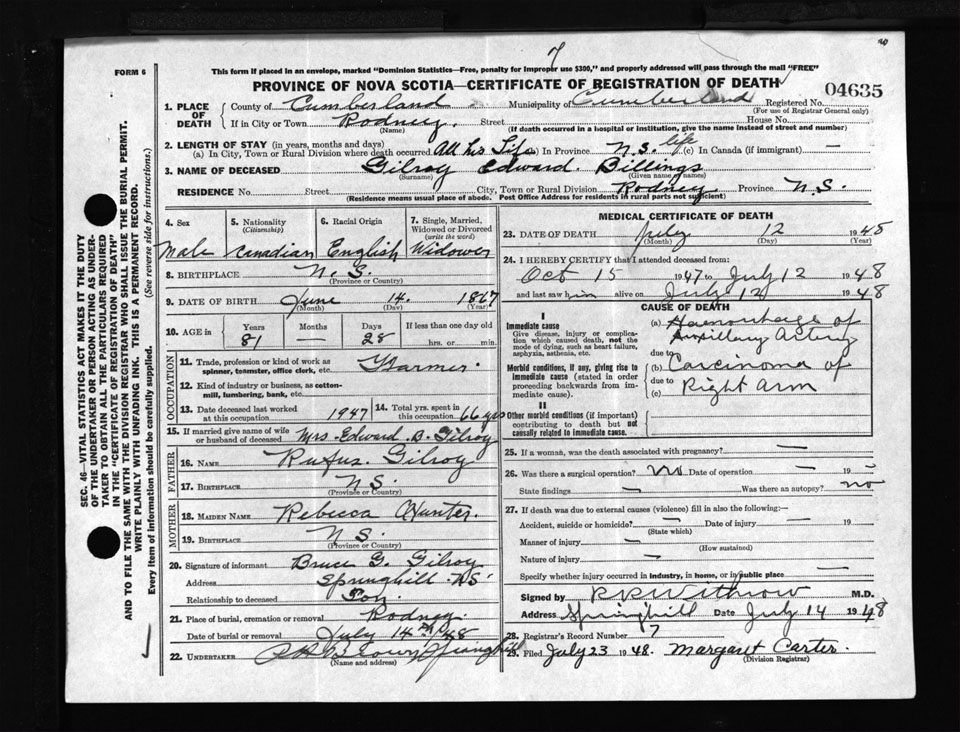 7
FORM 6
This form if placed in an envelope, marked "Dominion Statistics—Free, penalty for improper use $300," and properly addressed will pass through the mail "FREE"
PROVINCE OF NOVA SCOTIA—CERTIFICATE OF REGISTRATION OF DEATH
04635
1. PLACE OF DEATH County of Cumberland Municipality of Cumberland Registered No.
(For use of Registrar General only)
If in City or Town Rodney. Street House No.
(Name) (If death occurred in a hospital or institution, give the name instead of street and number)
2. LENGTH OF STAY (in years, months and days)
(a) In City, Town or Rural Division where death occurred All his Life (b) In Province N.S. life (c) In Canada (if immigrant) —
3. NAME OF DECEASED Gilroy Edward Billings
(Surname) (Given name/names)
RESIDENCE No. Street City, Town or Rural Division Rodney Province N.S.
(Residence means usual place of abode. Post Office Address for residents in rural parts not sufficient)
4. Sex
Male
5. Nationality
(Citizenship)
Canadian
6. Racial Origin
English
7. Single, Married, Widowed or Divorced
(write the word)
Widower
8. BIRTHPLACE N.S.
(Province or Country)
9. DATE OF BIRTH June 14. 1867
(Month) (Day) (Year)
10. AGE in Years Months Days If less than one day old
81 — 28 hrs. or min.
OCCUPATION
11. Trade, profession or kind of work as spinner, teamster, office clerk, etc. Farmer.
12. Kind of industry or business, as cotton-mill, lumbering, bank, etc.
13. Date deceased last worked at this occupation 1947
14. Total yrs. spent in this occupation 66 yrs
15. If married give name of wife or husband of deceased Mrs. Edward B. Gilroy
FATHER
16. NAME Rufus. Gilroy
17. BIRTHPLACE N.S.
(Province or Country)
MOTHER
18. MAIDEN NAME Rebecca Hunter.
19. BIRTHPLACE N.S.
(Province or Country)
20. Signature of informant Bruce G. Gilroy
Address Springhill N.S.
Relationship to deceased Son.
21. Place of burial, cremation or removal Rodney.
Date of burial or removal July 14th 1948
22. UNDERTAKER Brown Springhill
(Name and address)
MEDICAL CERTIFICATE OF DEATH
23. DATE OF DEATH July 12 1948
(Month) (Day) (Year)
24. I HEREBY CERTIFY that I attended deceased from:
Oct 15 1947 to July 12 1948
and last saw him alive on July 12 1948
CAUSE OF DEATH
I
Immediate cause
Give disease, injury or complication which caused death, not the mode of dying, such as heart failure, asphyxia, asthenia, etc.
(a) Haemorrhage of Axillary Artery
due to
Morbid conditions, if any, giving rise to immediate cause (stated in order proceeding backwards from immediate cause).
(b) Carcinoma of
due to Right Arm
(c)
II
Other morbid conditions (if important) contributing to death but not causally related to immediate cause.
25. If a woman, was the death associated with pregnancy? —
26. Was there a surgical operation? No Date of operation — 19
State findings — Was there an autopsy? no
27. If death was due to external causes (violence) fill in also the following:—
Accident, suicide or homicide? — Date of injury — 19
(State which)
Manner of injury —
(How sustained)
Nature of injury —
Specify whether injury occurred in industry, in home, or in public place —
Signed by R R Withrow M.D.
Address Springhill Date July 14 1948
28. Registrar's Record Number 7
29. Filed July 23 1948. Margaret Carter.
(Division Registrar)
SEC. 46—VITAL STATISTICS ACT MAKES IT THE DUTY
OF THE UNDERTAKER OR PERSON ACTING AS UNDER-
TAKER TO OBTAIN ALL THE PARTICULARS REQUIRED
IN THE "CERTIFICATE OF REGISTRATION OF DEATH"
AND TO FILE THE SAME WITH THE DIVISION REGISTRAR WHO SHALL ISSUE THE BURIAL PERMIT.
WRITE PLAINLY WITH UNFADING INK. THIS IS A PERMANENT RECORD.
Every item of information should be carefully supplied. (See reverse side for instructions.)